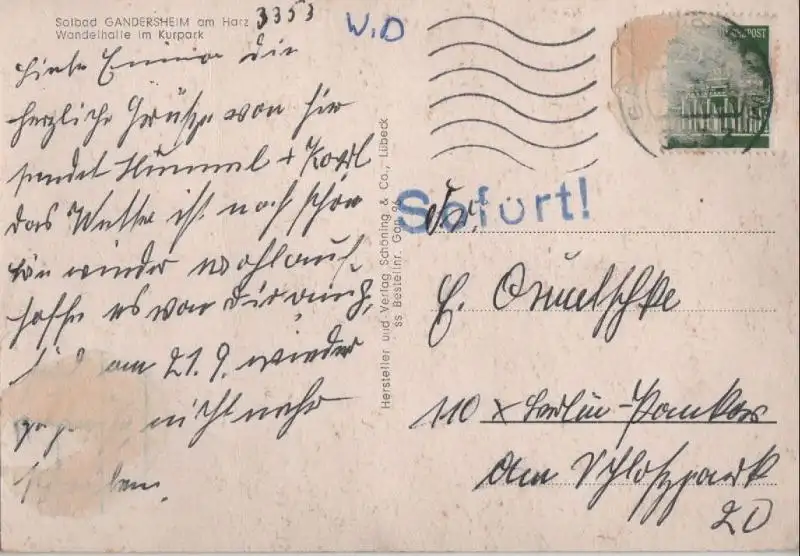 Solbad GANDERSHEIM am Harz
Wandelhalle im Kurpark
3353
W.D
Liebe Emma die
herzliche Grüße von hier
sendet Himmel + Karl
das Wetter ist noch schön
bin wieder wohlauf
hoffe es von Dir auch,
am 21. 9. wieder
nicht mehr
Hersteller und Verlag Schöning & Co., Lübeck
ss Bestellnr. Gan 96
Sofort!
Fr.
E.
110 x Berlin-Pankow
Am Schloßpark
20